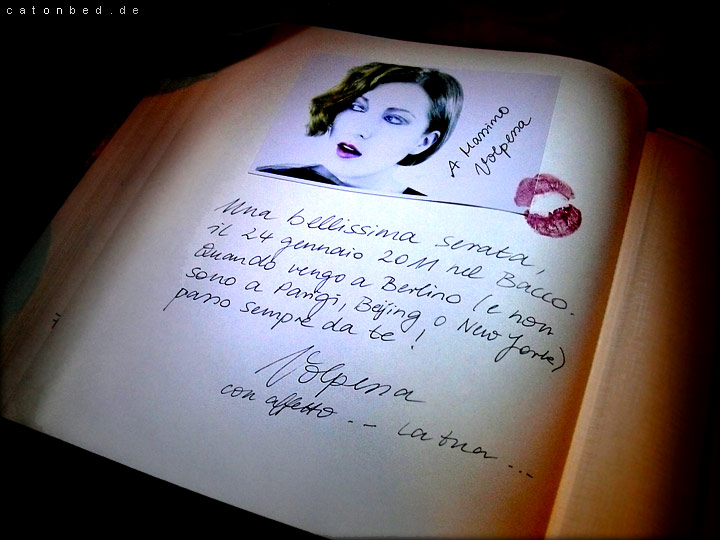 catonbed.de
A Massimo
Volpena
Una bellissima serata,
il 24 gennaio 2011 nel Bacco.
Quando vengo a Berlino (e non
sono a Parigi, Beijing o New York)
passo sempre da te!
Volpena
con affetto -- la tua ...